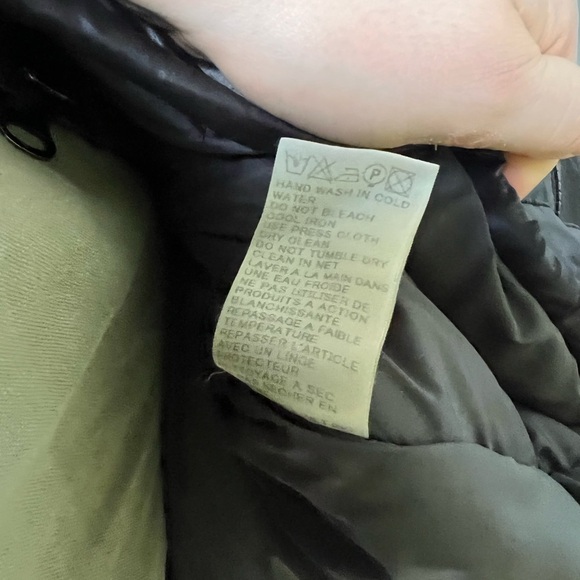 P
HAND WASH IN COLD
WATER
DO NOT BLEACH
COOL IRON
USE PRESS CLOTH
DRY CLEAN
DO NOT TUMBLE DRY
CLEAN IN NET
LAVER A LA MAIN DANS
UNE EAU FROIDE
NE PAS UTILISER DE
PRODUITS A ACTION
BLANCHISSANTE
REPASSAGE A FAIBLE
TEMPERATURE
REPASSER L'ARTICLE
AVEC UN LINGE
PROTECTEUR
NETTOYAGE A SEC
PAS SECHER EN